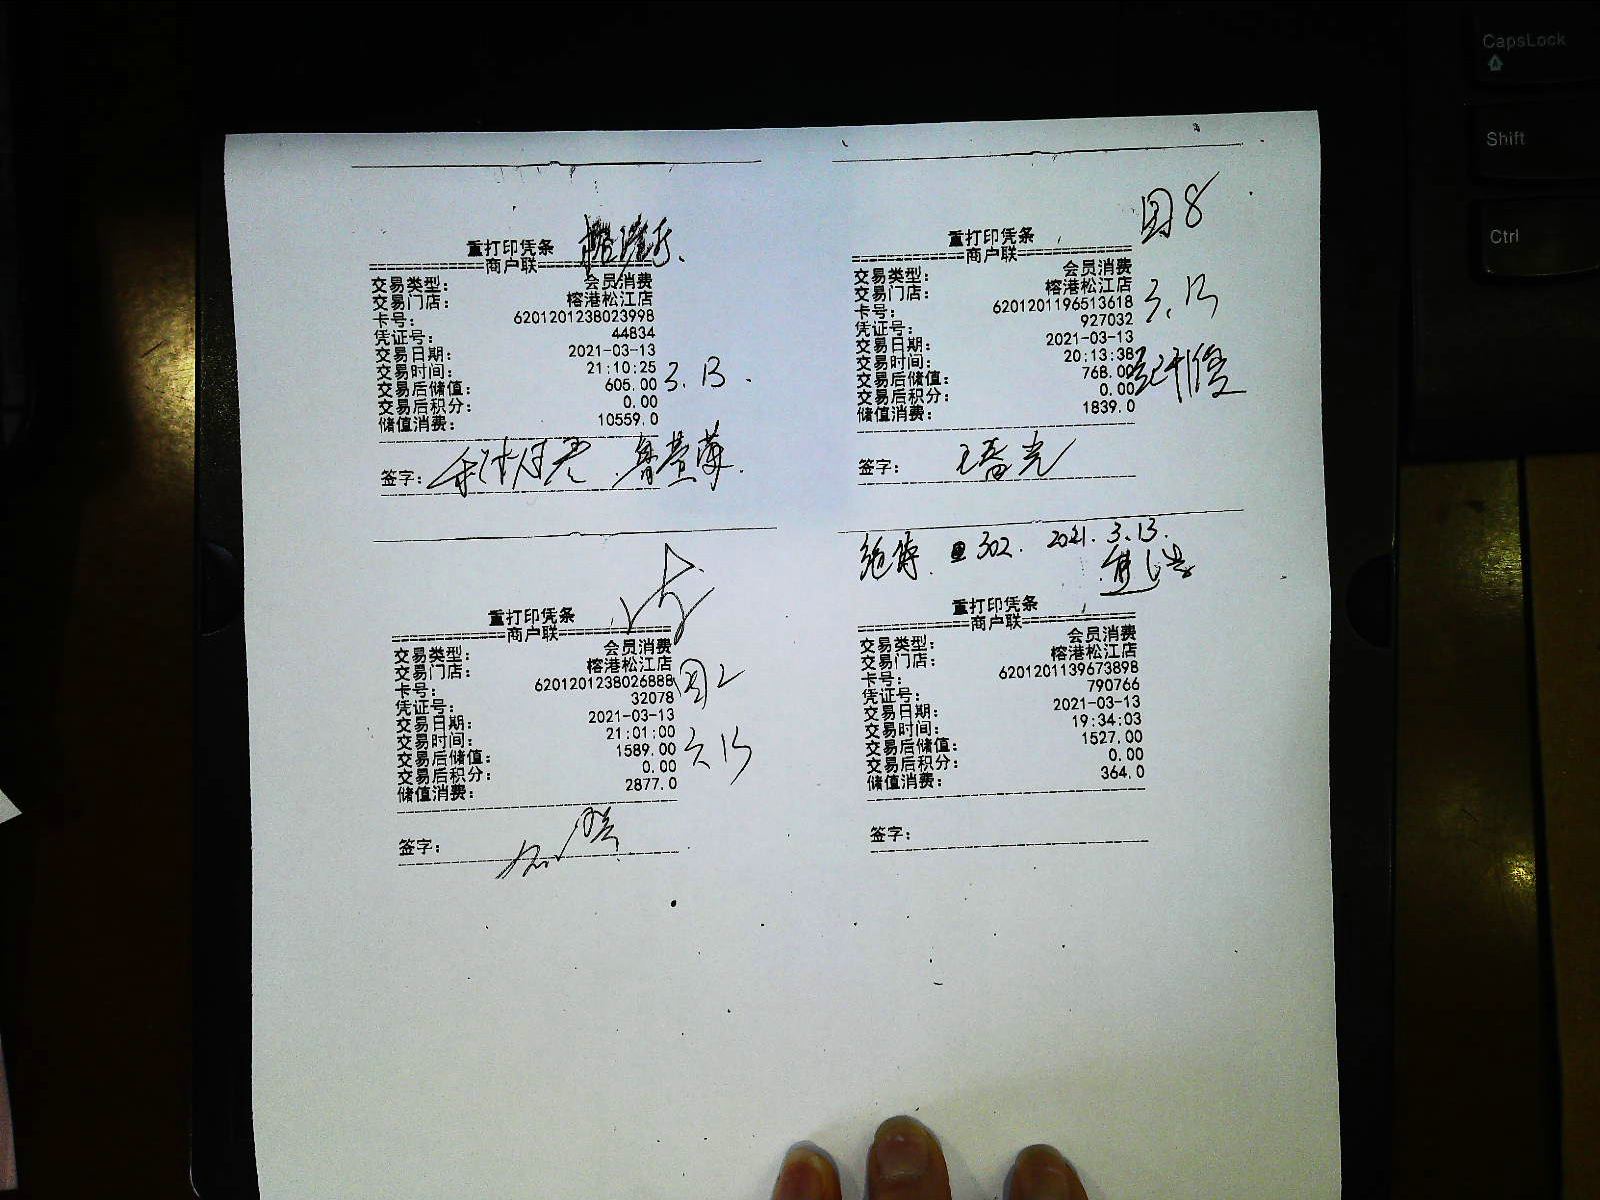 CapsLock
Shift
Ctrl
重打印凭条
商户联
交易类型： 会员消费
交易门店： 榕港松江店
卡号： 6201201238023998
凭证号： 44834
交易日期： 2021-03-13
交易时间： 21:10:25
交易后储值： 605.00 3.13.
交易后积分： 0.00
储值消费： 10559.0
签字：
图8
重打印凭条
商户联
交易类型： 会员消费
交易门店： 榕港松江店
卡号： 6201201196513618 3.13
凭证号： 927032
交易日期： 2021-03-13
交易时间： 20:13:38
交易后储值： 768.00
交易后积分： 0.00
储值消费： 1839.0
签字：
重打印凭条
商户联
交易类型： 会员消费
交易门店： 榕港松江店
卡号： 6201201238026888
凭证号： 32078
交易日期： 2021-03-13
交易时间： 21:01:00
交易后储值： 1589.00
交易后积分： 0.00
储值消费： 2877.0
签字：
302. 2021.3.13.
重打印凭条
商户联
交易类型： 会员消费
交易门店： 榕港松江店
卡号： 6201201139673898
凭证号： 790766
交易日期： 2021-03-13
交易时间： 19:34:03
交易后储值： 1527.00
交易后积分： 0.00
储值消费： 364.0
签字：